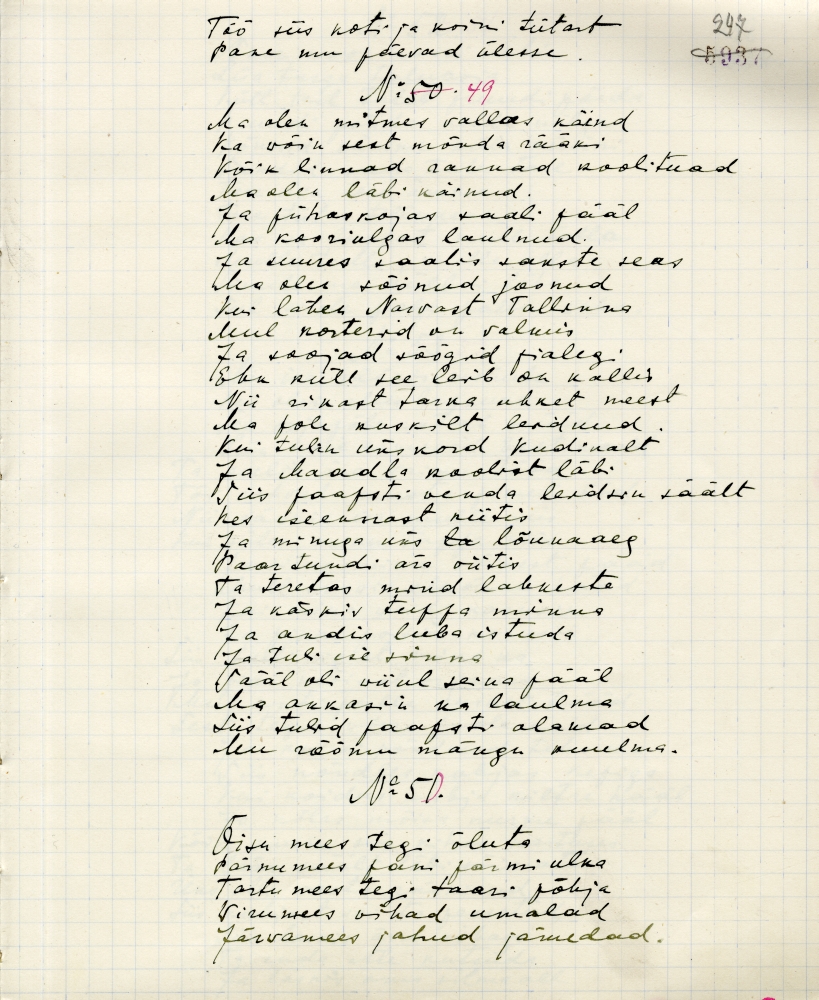 Töö siis koti ja koini tütart
Pane mu päevad ülesse.
247
5937
No 50. 49
Ma olen mitmes vallas käind
Ka võin sest mõnda rääki
Kõik linnad rannad koolituad
Ma olen läbi käinud.
Ja pühaskojas saali pääl
Ma kooriulgas laulnud.
Ja suures saalis sakste seas
Ma olen söönud joonud
Kui lähen Narvast Tallinna
Mul korterid on valmis
Ja soojad söögid pialegi
Ehk küll see leib on kallis
Nii rikast tarka uhket meest
Ma pole kuskilt leidnud.
Kui tulin üks kord Kudinalt
Ja Maadla koolist läbi
Siis paapsti venda leidsin säält
Kes iseennast kiitis
Ja minuga üks lõunaaeg
Paar tundi ära viitis
Ta teretas mind lahkeste
Ja käskis tuppa minna
Ja andis luba istuda
Ja tuli ise sinna
Sääl oli viiul seina pääl
Ma akkasin ka laulma
Siis tulid paapsti alamad
Mu rõõmu mängu kuulma.
No 50.
Õisu mees tegi õluta
Pärnumees pani pärmi ulka
Tartu mees tegi taari põhja
Virumees vihad umalad
Järvamees jahud jämedad.